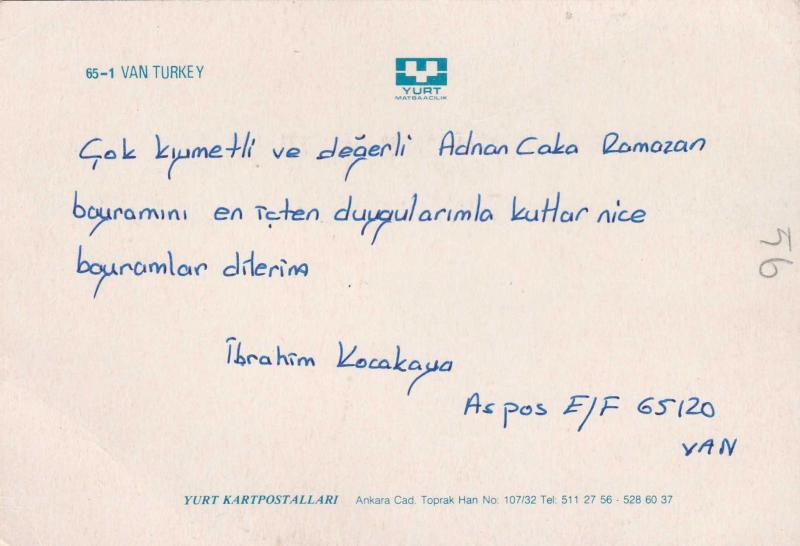 65-1 VAN TURKEY
YURT
MATBAACILIK
Çok kıymetli ve değerli Adnan Caka Ramazan
bayramını en içten duygularımla kutlar nice
bayramlar dilerim
İbrahim Kocakaya
As pos E/F 65120
VAN
56
YURT KARTPOSTALLARI Ankara Cad. Toprak Han No: 107/32 Tel: 511 27 56 - 528 60 37